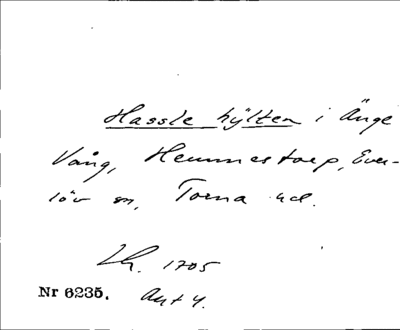 Hassle hylten i Änge
Vång, Hemmestorp, Ever-
löv sn, Torna hd.
Lh. 1705
Nr 6235. Akt 4.